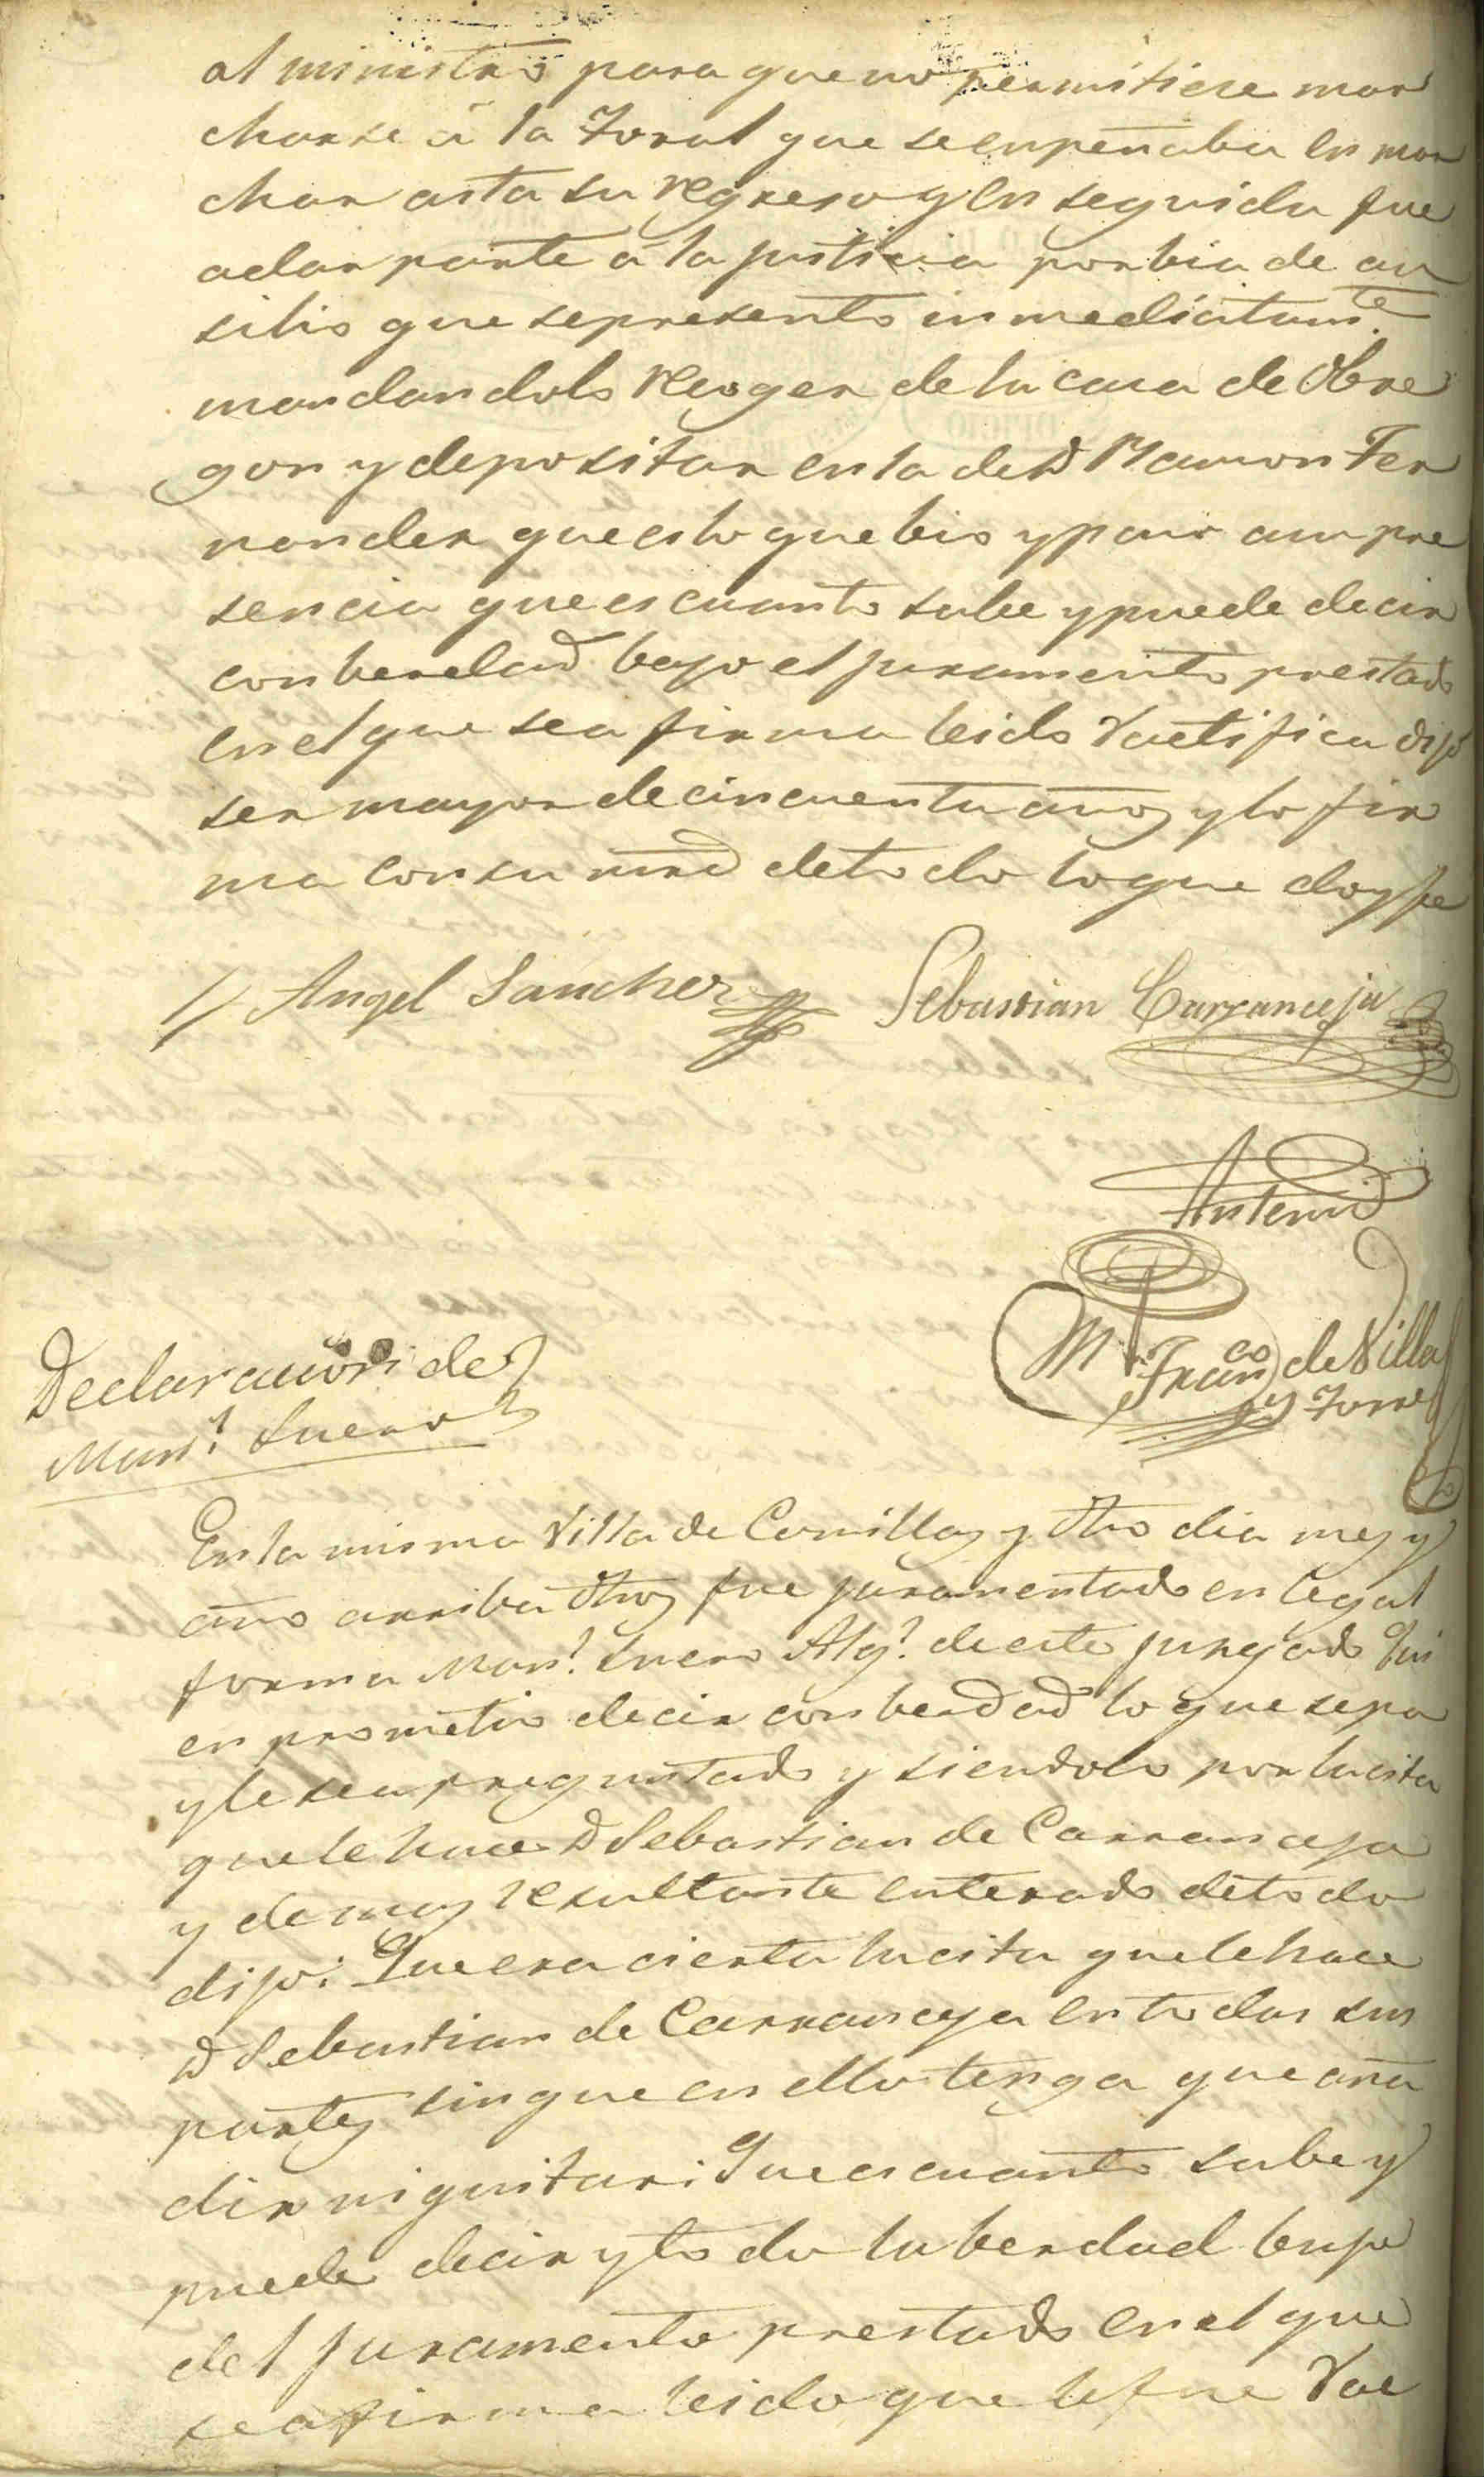 al ministro para que no permitiere mar
charse á la Toral que se enpeñaba en mar
char asta su regreso y en seguida fue
adar parte a la justicia por bia de au
silio que se presento inmediatam.te
mandandolo recoger de la casa de Obre
gon y depositar en la de D Ramon Fer
nandez que es lo que bio y paso asu pre
sencia que es cuanto sabe y puede decir
con berdad bajo el juramento prestado
en el que se afirma leido Ractifica dijo
ser mayor de cincuenta años y lo fir
ma con su mrd de todo lo que doy fe
Angel Sanchez Sebastian Carranceja
Antemi
Fran.co de Villa
y Torre
Declaracion de
Man.l Suero
En la misma Villa de Comillas y dho dia mes y
año arriba dhos fue juramentado en legal
forma Man.l Suero Alg.l de este juzgado Qui
en prometio decir con berdad lo que sepa
y le sea preguntado y siendolo por la cita
que le hace D Sebastian de Carranceja
y demas resultante enterado de todo
dijo: Que era cierta la cita que le hace
D Sebastian de Carranceja en todas sus
partes sin que en ello tenga que aña
dir ni quitar: Que es cuanto sabe y
puede decir y todo la berdad bajo
del juramento prestado en el que
se afirma leido que le fue Rac